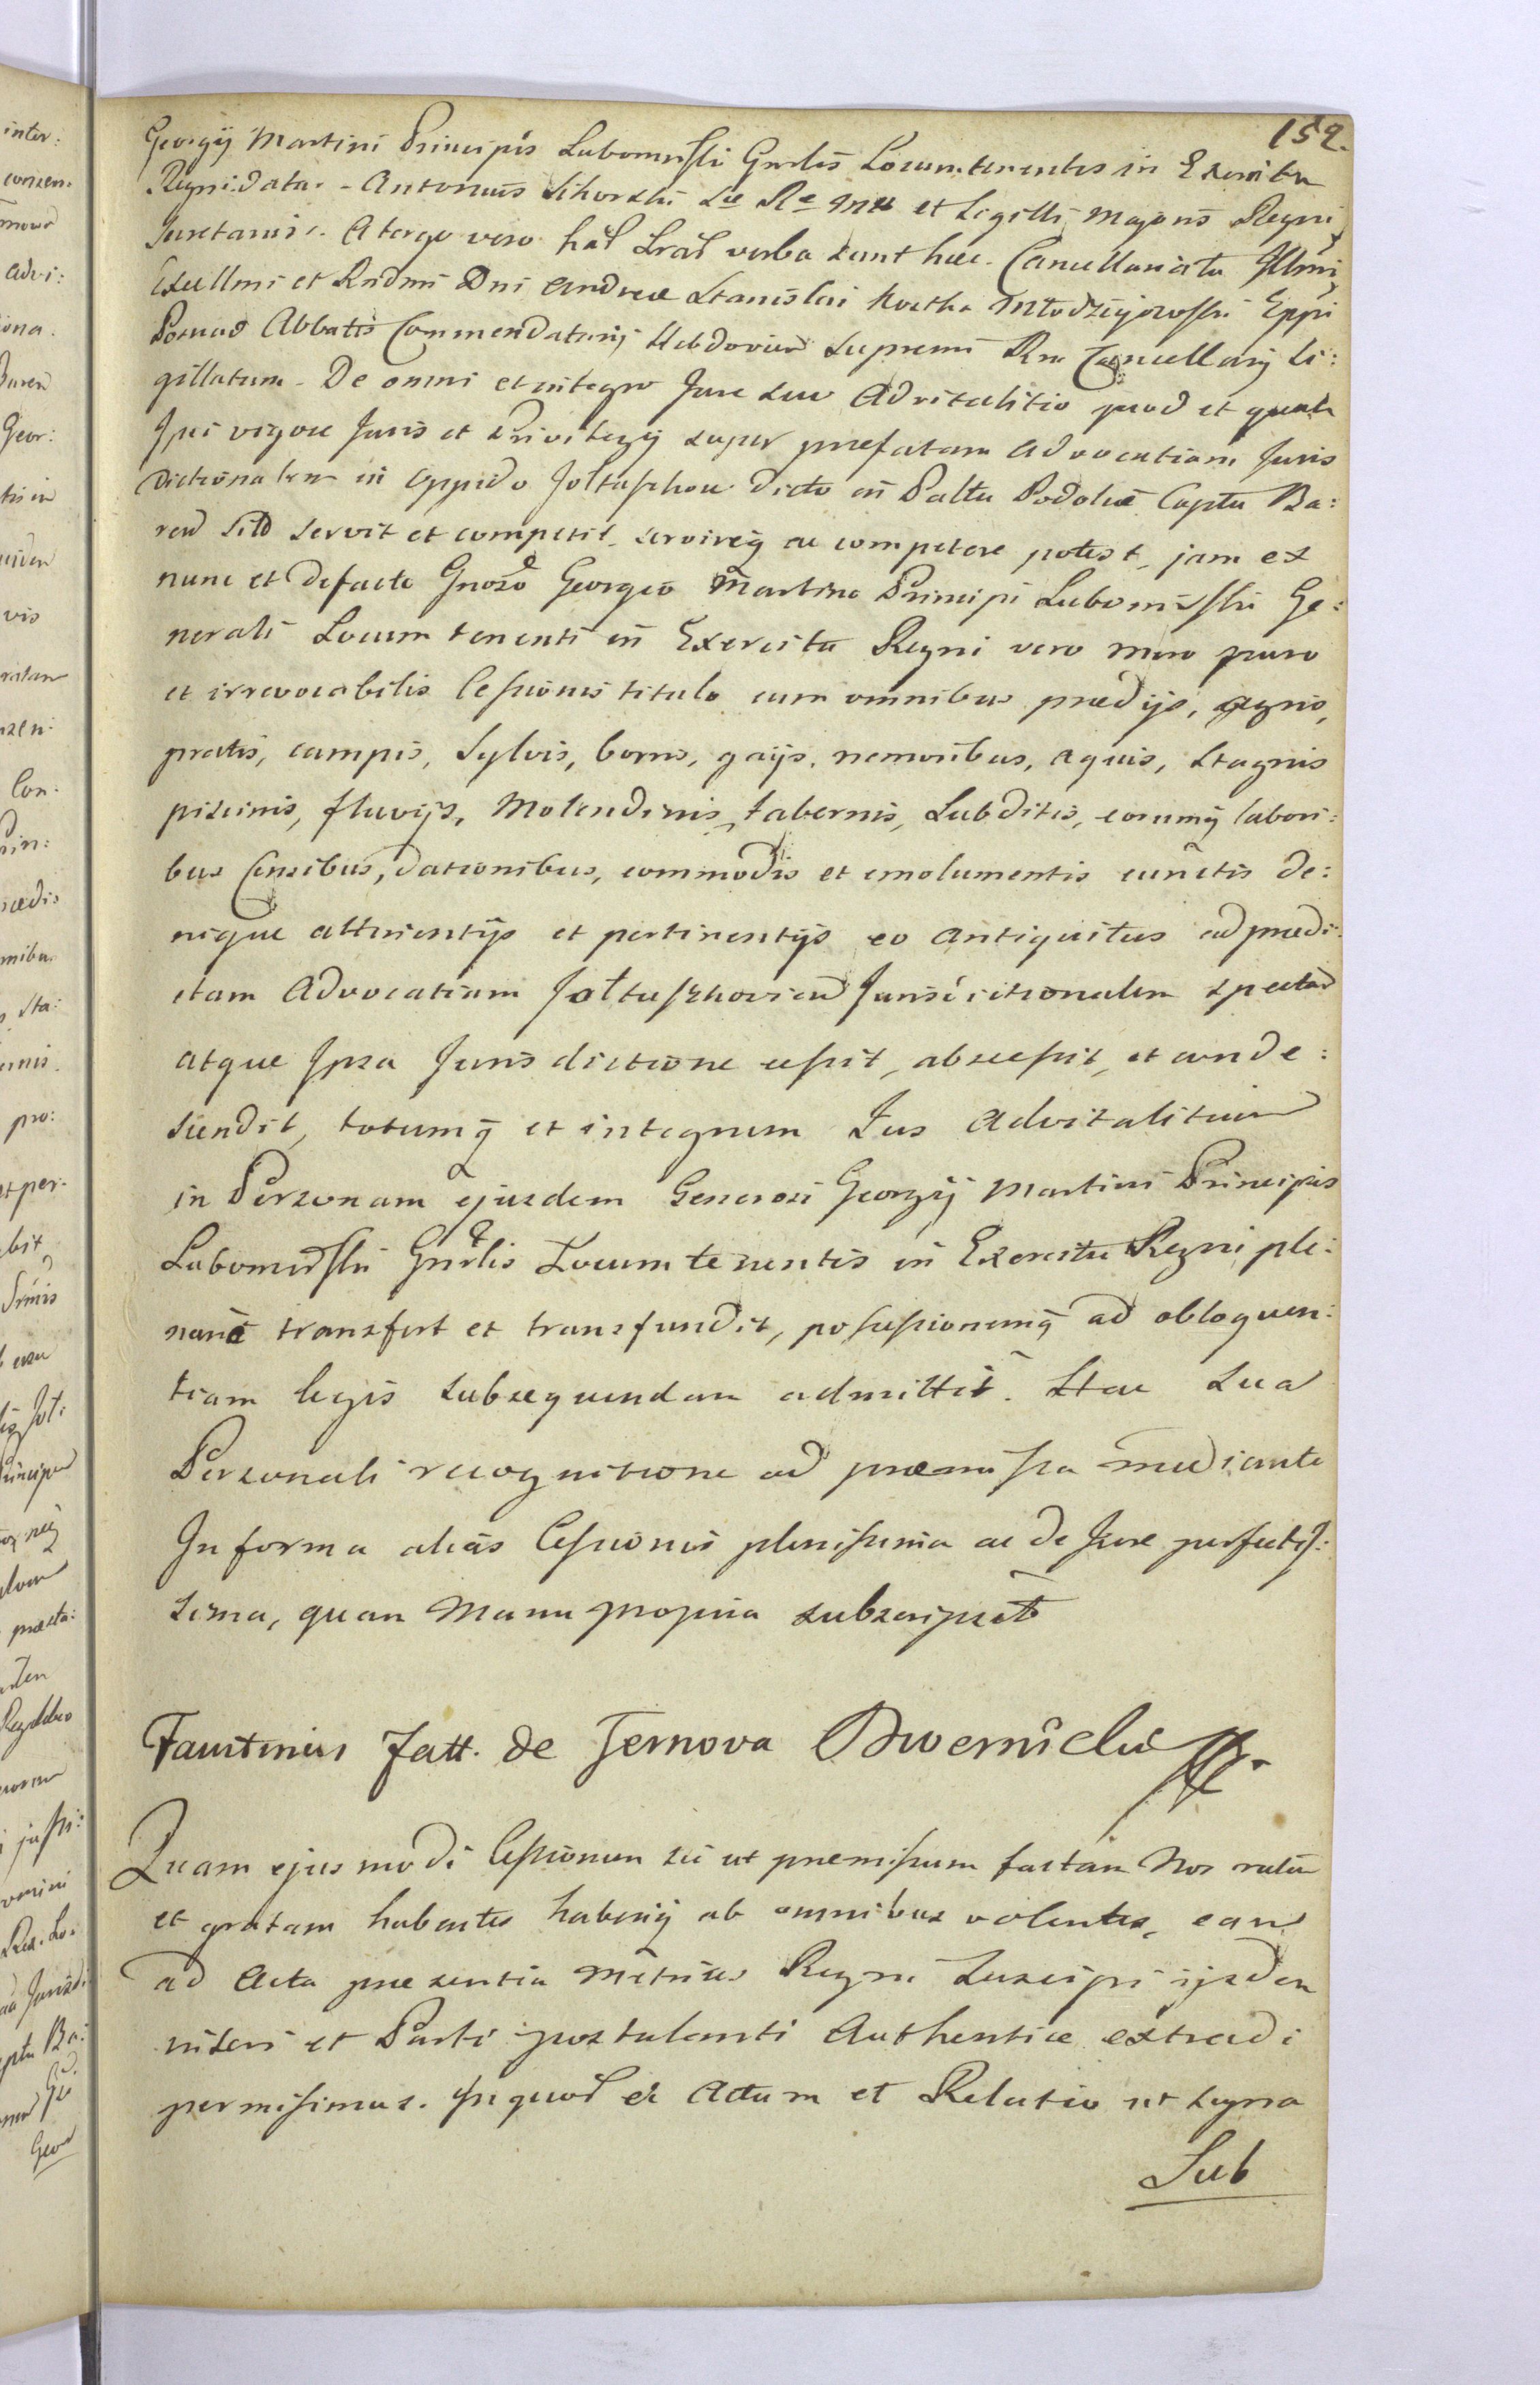 159.
Georgij Martini Principis Lubomirski Gnrlis Locumtenentis in Exercitu
Regni data. - Antonius Sikorski Sæ Ræ Mtts et Sigilli Majoris Regni
Secretarius. A tergo vero hāł Lrāł verba sunt hæc. Cancellariatu Illmi
Excellmi et Rndmi Dni Andreæ Stanislai Kostka Młodziejowski Eppi
Posnan Abbatis Commendatarij Hebdovien Supremi Rni Cancellarij Si:
gillatum. De omni et integro Jure suo Advitalitio quod et quale
Ipsi vigore Juris et Privilegij super præfatam Advocatiam Juris
dictionalem in Oppido Jołtuszkow dicto in Palttu Podoliæ Capttu Ba:
ren Sito servit et competit, servireq ac competere potest, jam ex
nunc et defacto Gnoso Georgio Martino Principi Lubomirski Ge:
nerali Locum tenenti in Exercitu Regni vero mero puro
et irrevocabilis Cessionis titulo cum omnibus prædijs, agris,
pratis, campis, Sylvis, borris, gaijs, nemoribus, aquis, stagnis
piscinis, fluvijs, Molendinis, tabernis, Subditis, eorumq labori:
bus Censibus, dationibus, commodis et emolumentis cunctis de:
nique attinentijs et pertinentijs eo antiquitus ad prædi:
ctam Advocatiam Jołtuszkovien Jurisdictionalem spectan
atque Ipsa Jurisdictione cessit, abscessit, et conde:
scendit, totumq et integrum Jus Advitalitium
in Personam ejusdem Generosi Georgij Martini Principis
Lubomirski Gnrlis Locumtenentis in Exercitu Regni ple:
narie transfert et transfundit, possessionemq ad obloquen:
tiam legis subsequendam admittit. Hac Sua
Personali recognitione ad præmissa mediante
In forma alias Cessionis plenissima ac de Jure perfectis:
sima, quam Manu propria subscripsit
Faustinus Jatt. de Ternova Dwernicki
Quam ejusmodi Cessionem sic ut præmissum factam Nos ratam
et gratam habentes haberiq ab omnibus volentes, eam
ad Acta præsentia Metrices Regni Suscipi ijsdem
inseri et Parti postulanti Authentice extradi
permisimus. In quoł er Actum et Relatio ut supra
Sub